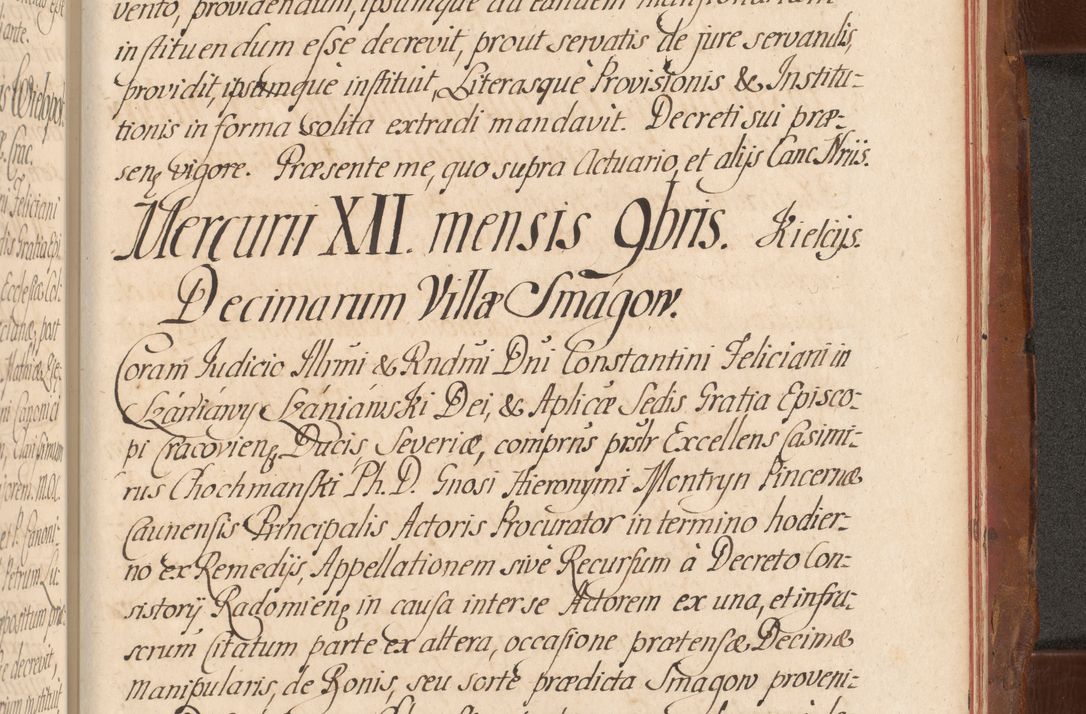 vento, providendum, ipsumque ad eandem mansionariam
instituendum esse decrevit, prout servatis de jure servandis,
providit, ipsumque instituit, Literasque Provisionis & Institu-
tionis in forma solita extradi mandavit. Decreti sui præ-
senę vigore. Præsente me, quo supra Actuario, et alijs Canc. Nriis.
Mercurii XII. mensis 9bris. Kielcijs.
Decimarum Villæ Smagow.
Coram Judicio Illrmi & Rndmi Dni Constantini Feliciani in
Szániawy Szániáwski Dei, & Aplicæ Sedis Gratia Episco-
pi Cracovienę, Ducis Severiæ, comprns prstr Excellens Casimi-
rus Chochmanski Ph. D. Gnosi Hieronymi Montryn Pincernæ
Caunensis Principalis Actoris Procurator in termino hodier-
no ex Remedijs, Appellationem sive Recursum à Decreto Con-
sistorij Radomienę in causa inter se Actorem ex una, et infra-
scrum Citatum parte ex altera, occasione prætensæ Decimæ
Manipularis, de Bonis, seu sorte prædicta Smagow proveni-
ante.
G. Crac.
ri Feliciani
dis Gratia Epi
Ecclesiæ Col-
post
Canonici
Clarissimum
et P. Canoni-
Petrum Lu-
decrevit,